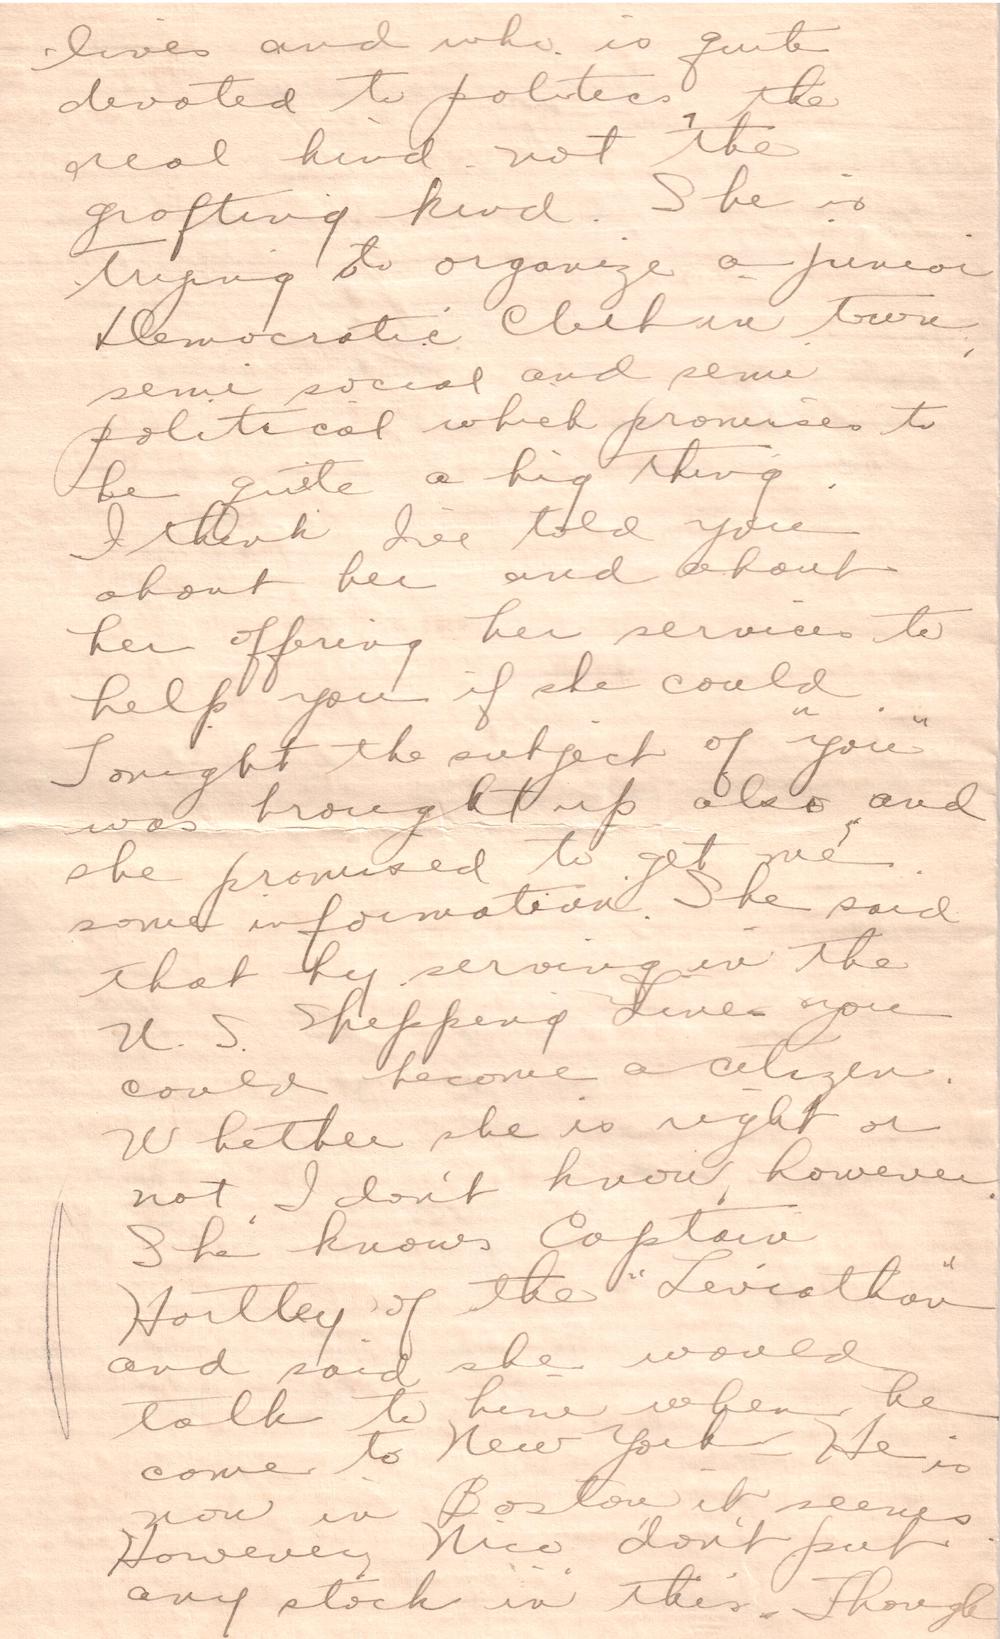 lives and who is quite
devoted to politics, the
real kind not the
grafting kind. She is
trying to organize a junior
Democratic Club in town,
semi social and semi
political which promises to
be quite a big thing.
I think I've told you
about her and about
her offering her services to
help you if she could
Tonight the subject of "you"
was brought up also and
she promised to get me
some information. She said
that by serving in the
U. S. Shipping Lines you
could become a citizen.
Whether she is right or
not, I don't know, however.
She knows Captain
Hartley of the "Leviathan"
and said she would
talk to him when he
come to New York He is
now in Boston it seems.
However, Nico don't put
any stock in this. Though